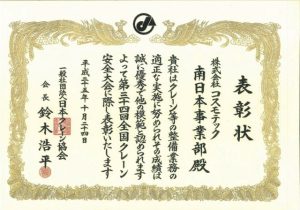 表彰状
株式会社コスモテック
南日本事業部殿
貴社はクレーン等の整備業務の
適正な実施に努められその成績は
誠に優秀で他の模範と認められます
よって第三十四回全国クレーン
安全大会に際し表彰いたします
平成二十五年十月二十四日
一般社団法人日本クレーン協会
会長 鈴木浩平